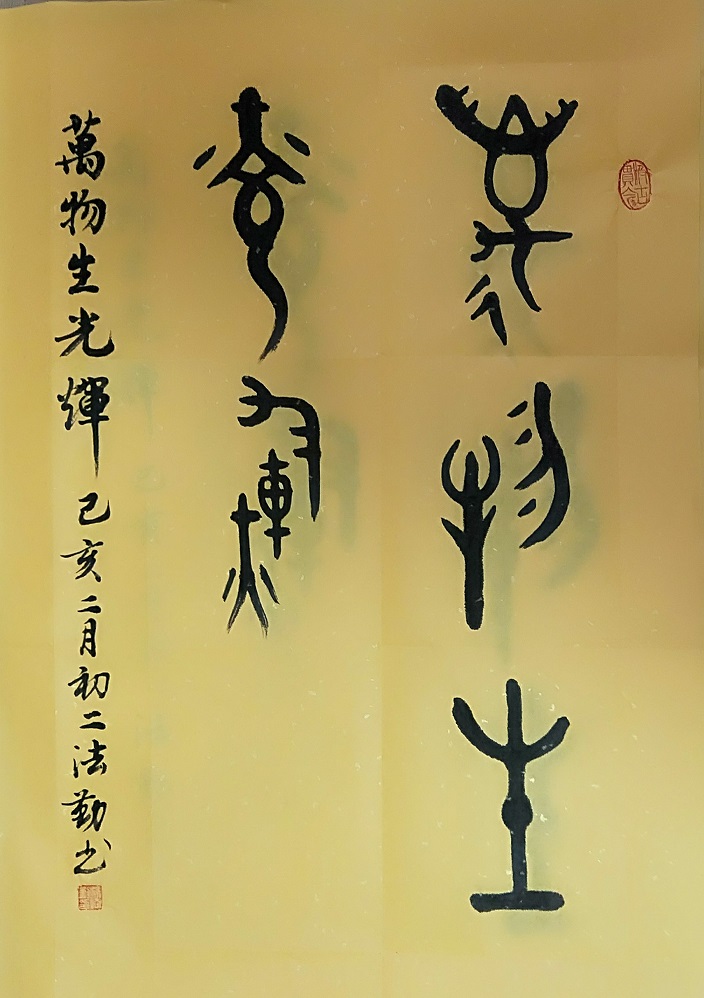 萬物生
光輝
萬物生光輝 己亥二月初二法勤书